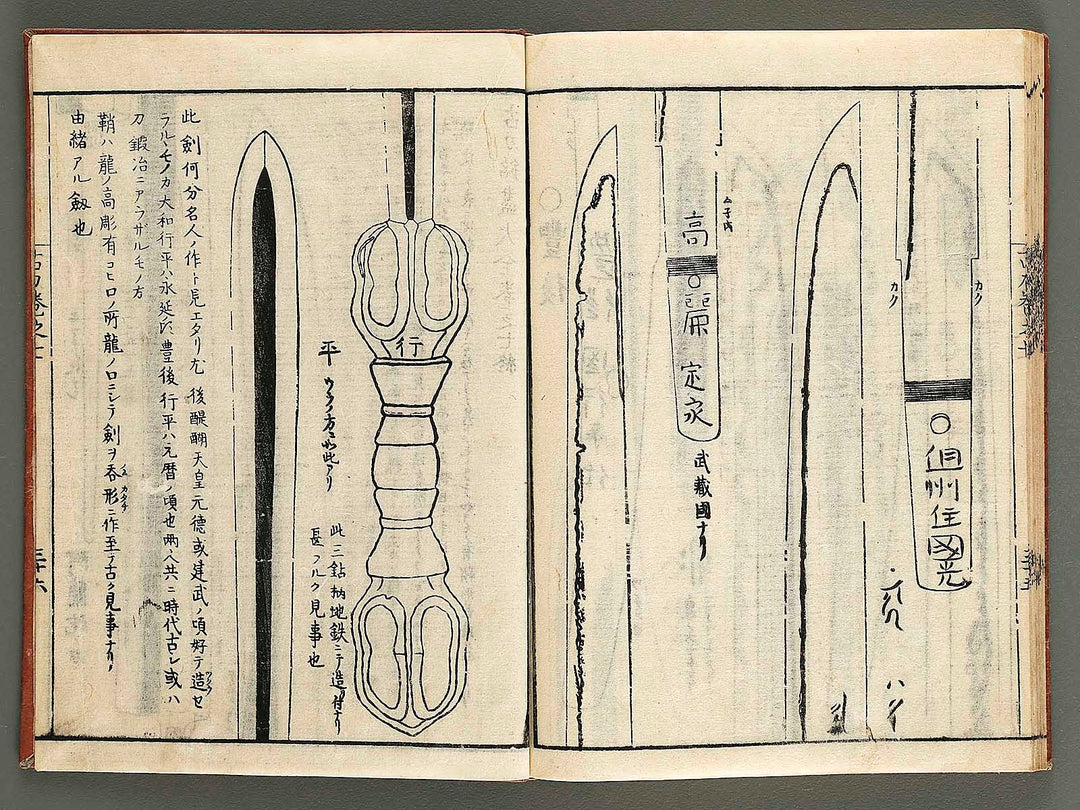 カク
カク
○但州住國光
高○麗 定家
武蔵國ナリ
行
平 ウラノ方ニ如此アリ
此三鈷柄地鉄ニテ造リ付ナリ
甚フルク見事也
此劍何分名人ノ作ト見エタリ尤後醍醐天皇元德或建武ノ頃好テ造セ
ラルヽモノカ大和行平ハ永延比豊後行平ハ元暦ノ頃也兩人共ニ時代古シ或ハ
刀鍛冶ニアラザルモノ方
鞘ハ龍ノ高彫有コヒロノ所龍ノ口ニシテ劍ヲ呑形ニ作至テ古ク見事ナリ
由緒アル劔也
古刀巻之七
三十六